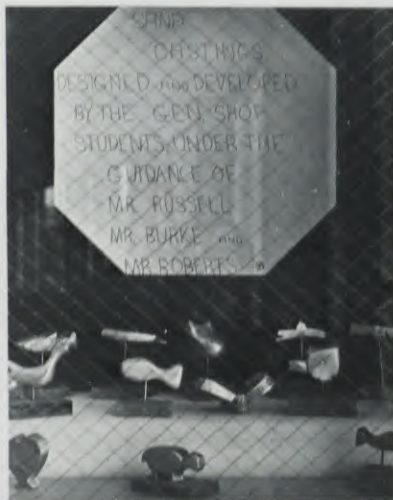 SAND
CASTINGS
DESIGNED AND DEVELOPED
BY THE GEN SHOP
STUDENTS, UNDER THE
GUIDANCE OF
MR. RUSSELL
MR. BURKE AND
MR ROBERTS